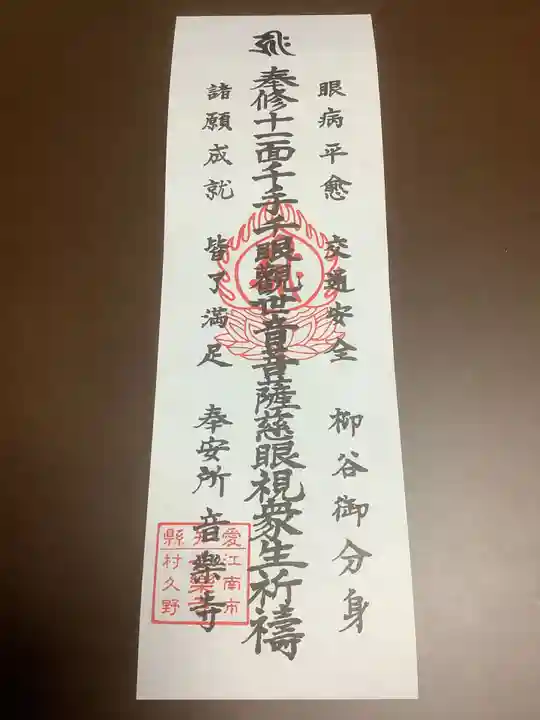 眼病平愈 交通安全 柳谷御分身
奉修十一面千手千眼觀世音菩薩慈眼視衆生祈禱
諸願成就 皆了滿足 奉安所 音樂寺
愛江南市
縣村久野